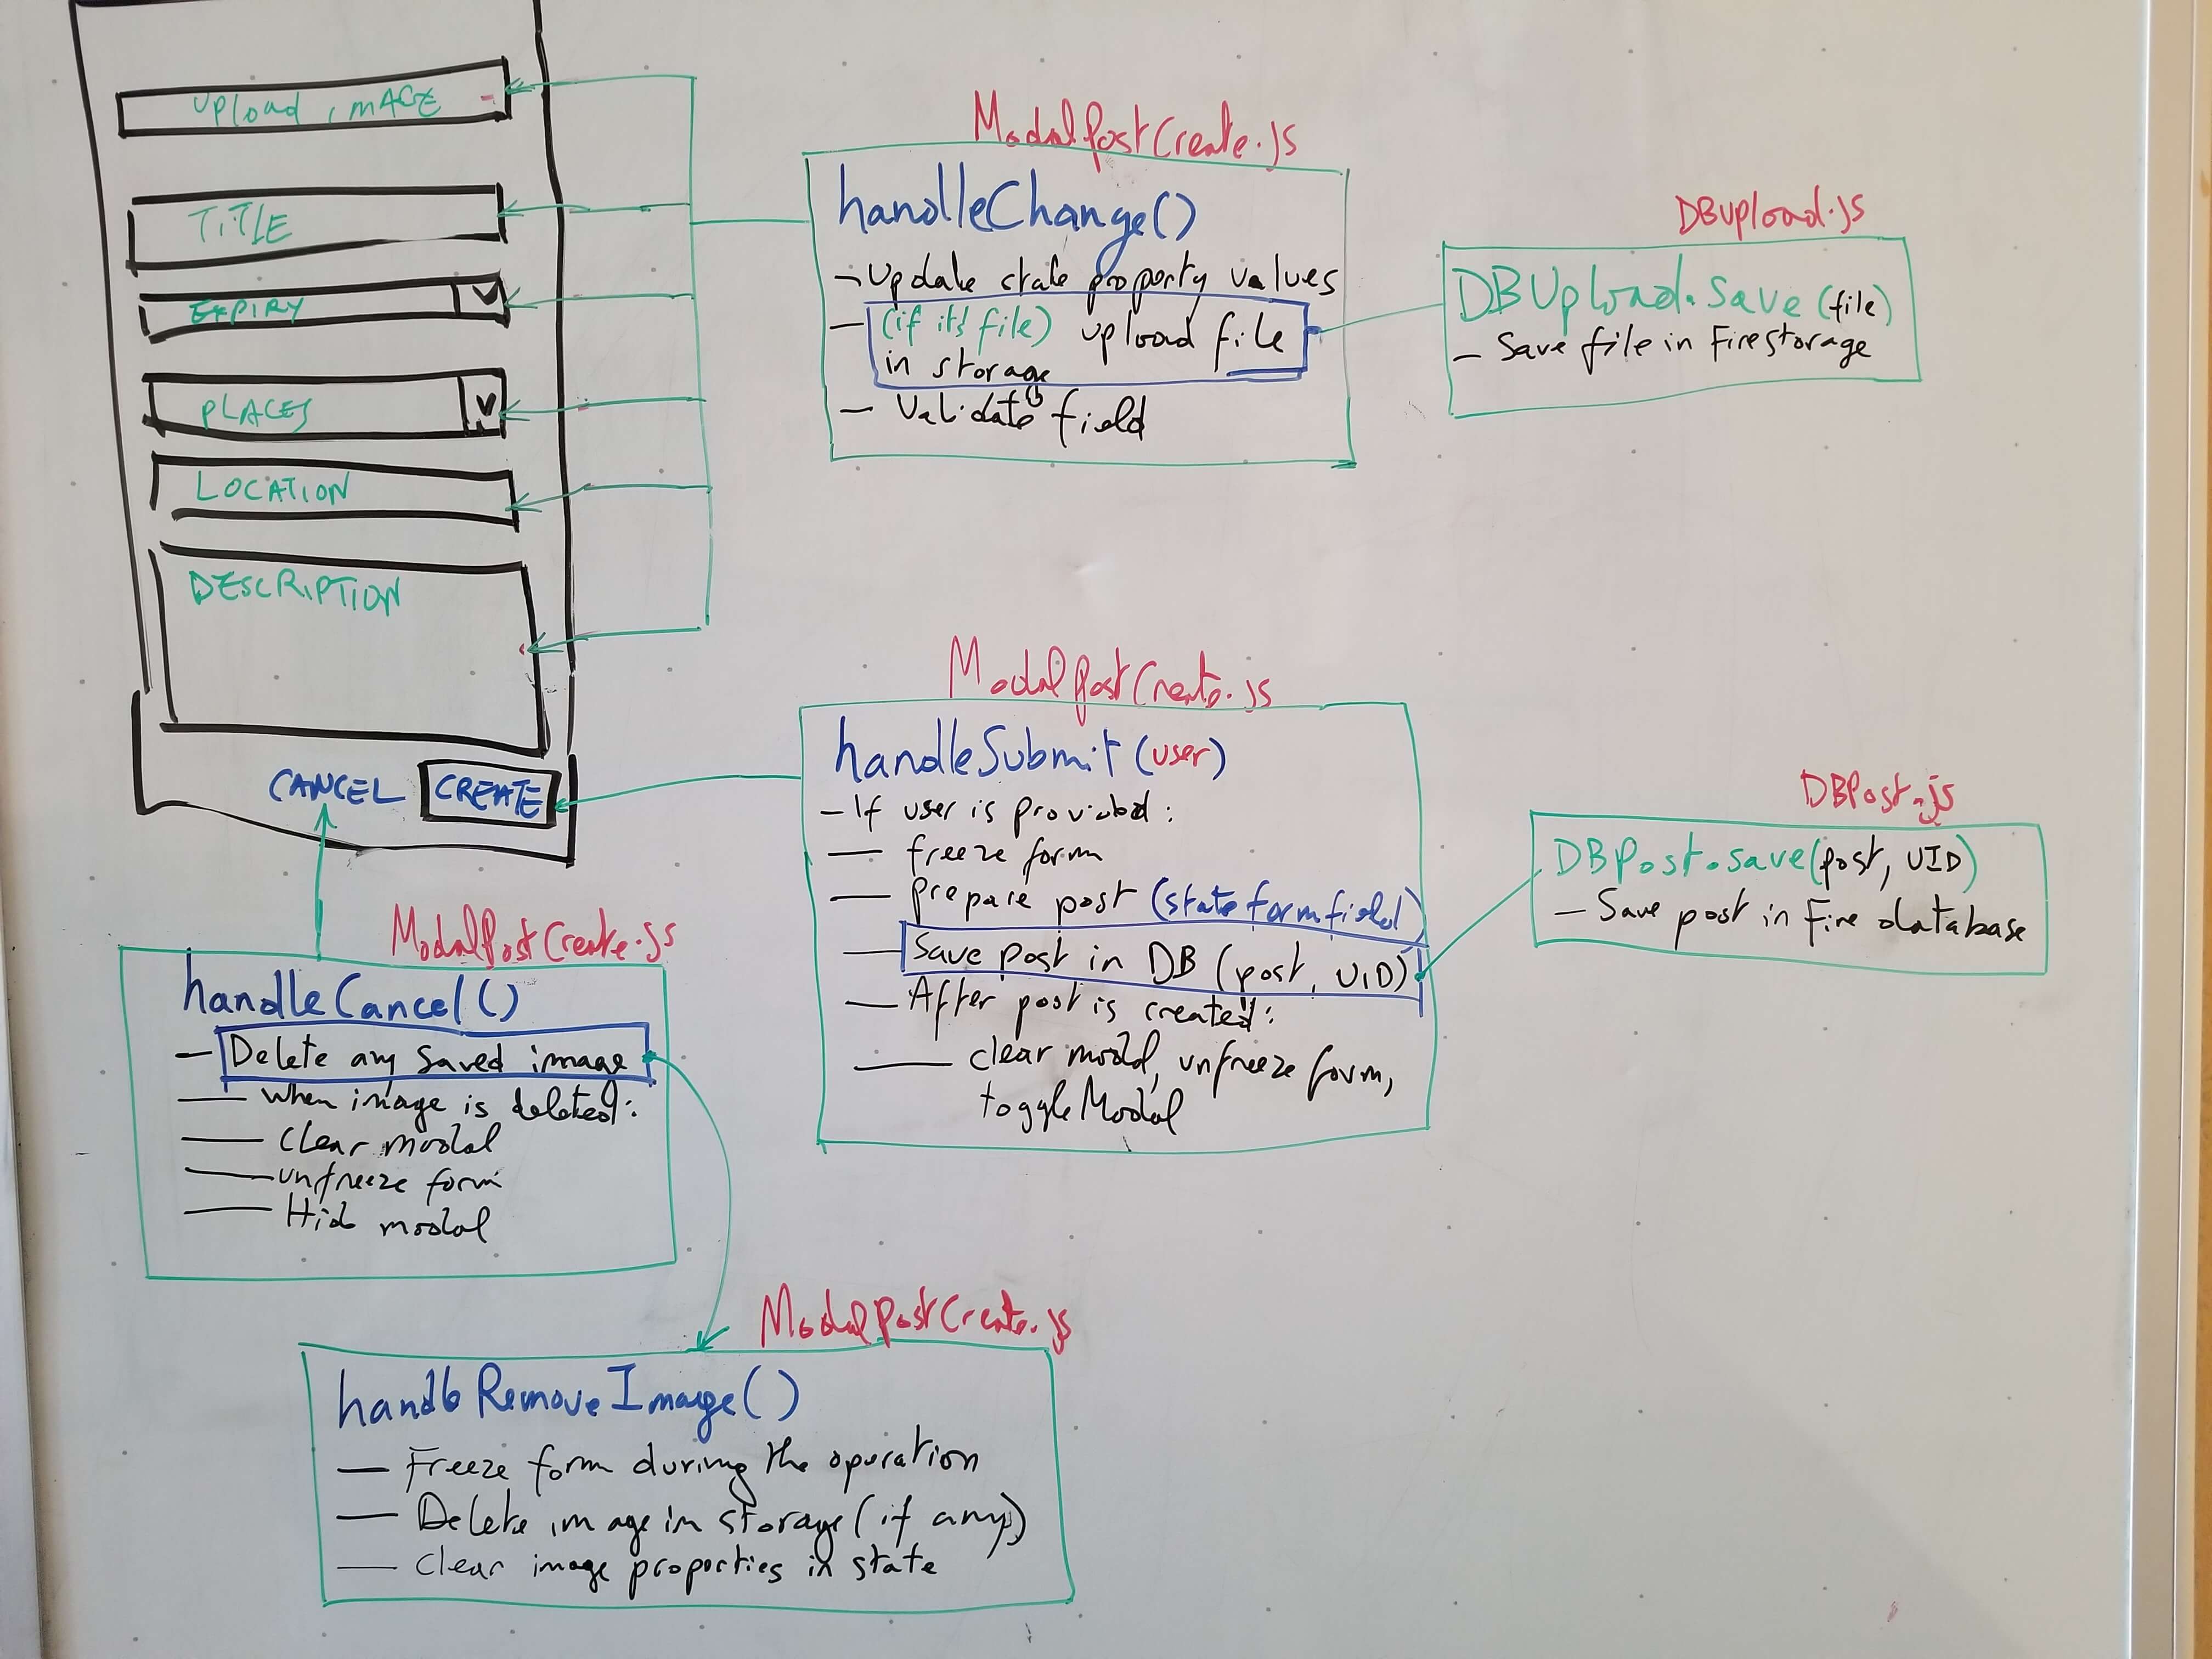 Upload image
TiTLE
EXPIRY
V
PLACES
V
LOCATION
DESCRIPTION
CANCEL
CREATE
ModalPostCreate.js
handleChange()
- Update state property values
- (if it's file) upload file
in storage
- Validate field
DBUpload.js
DBUpload.save(file)
- Save file in Firestorage
ModalPostCreate.js
handleSubmit(user)
- If user is provided:
- freeze form
- prepare post (state form field)
- Save post in DB (post, UID)
- After post is created:
- clear modal, unfreeze form,
toggleModal
DBPost.js
DBPost.save(post, UID)
- Save post in Fire database
ModalPostCreate.js
handleCancel()
- Delete any saved image
- when image is deleted:
- Clear modal
- unfreeze form
- Hide modal
ModalPostCreate.js
handleRemoveImage()
- Freeze form during the operation
- Delete image in storage (if any)
- Clear image properties in state